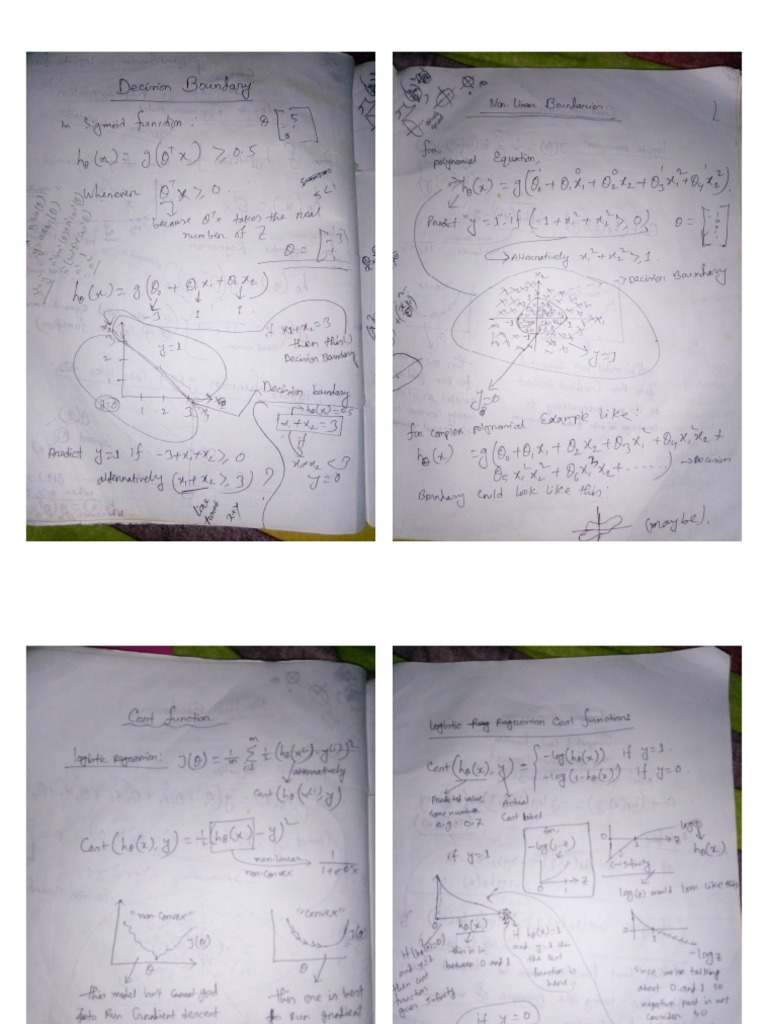 Decision Boundary
In Sigmoid function:
hθ(x) = g(θᵀx) ≥ 0.5
Whenever θᵀx ≥ 0
because θᵀx takes the real
number of Z
θ = [-3 1 1]
hθ(x) = g(θ₀ + θ₁x₁ + θ₂x₂)
-3 1 1
if x1+x2=3
then this
Decision Boundary
y=1
y=0
3
2
1
1 2 3 x₁
Decision boundary
hθ(x)=0.5
x₁+x₂=3
if
x₁+x₂<3
y=0
Predict y=1 if -3+x₁+x₂≥0
alternatively (x₁+x₂≥3)
Non-Linear Boundaries
for
polynomial Equation,
hθ(x) = g(θ₀+θ₁x₁+θ₂x₂+θ₃x₁²+θ₄x₂²)
-1 0 0 1 1
Predict "y=1" if (-1+x₁²+x₂²≥0)
→ Alternatively x₁²+x₂²≥1
→ Decision Boundary
x₂
y=1
y=0
for complex polynomial Example like:
hθ(x) = g(θ₀+θ₁x₁+θ₂x₂+θ₃x₁²+θ₄x₁²x₂+
θ₅x₁²x₂²+θ₆x₁³x₂+......) → Decision
Boundary could look like this:
(maybe).
Cost function
Logistic Regression: J(θ) = 1/m Σ 1/2 (hθ(x⁽ⁱ⁾)-y⁽ⁱ⁾)²
alternatively
cost(hθ(x⁽ⁱ⁾),y)
Cost(hθ(x),y) = 1/2 (hθ(x)-y)²
non-linear
non-convex
"non-convex"
J(θ)
θ
"convex"
J(θ)
this one is best
for Run gradient
Logistic Regression Cost function:
Cost(hθ(x),y) = { -log(hθ(x)) if y=1
-log(1-hθ(x)) if y=0
Predicted value
some number
e.g: 0.7
Actual
Cost label
for
-log(1-z)
if y=1
log z
z
hθ(x)
log(z) would look like this
0 hθ(x)
this is in
between 0 and 1
if hθ(x)=1
and y=1 then
the cost
function is
here
if hθ(x)=0
and y=1
then cost
function
goes infinity
-log z
since we're talking
about 0 and 1 so
negative part is not
consider so
if y=0